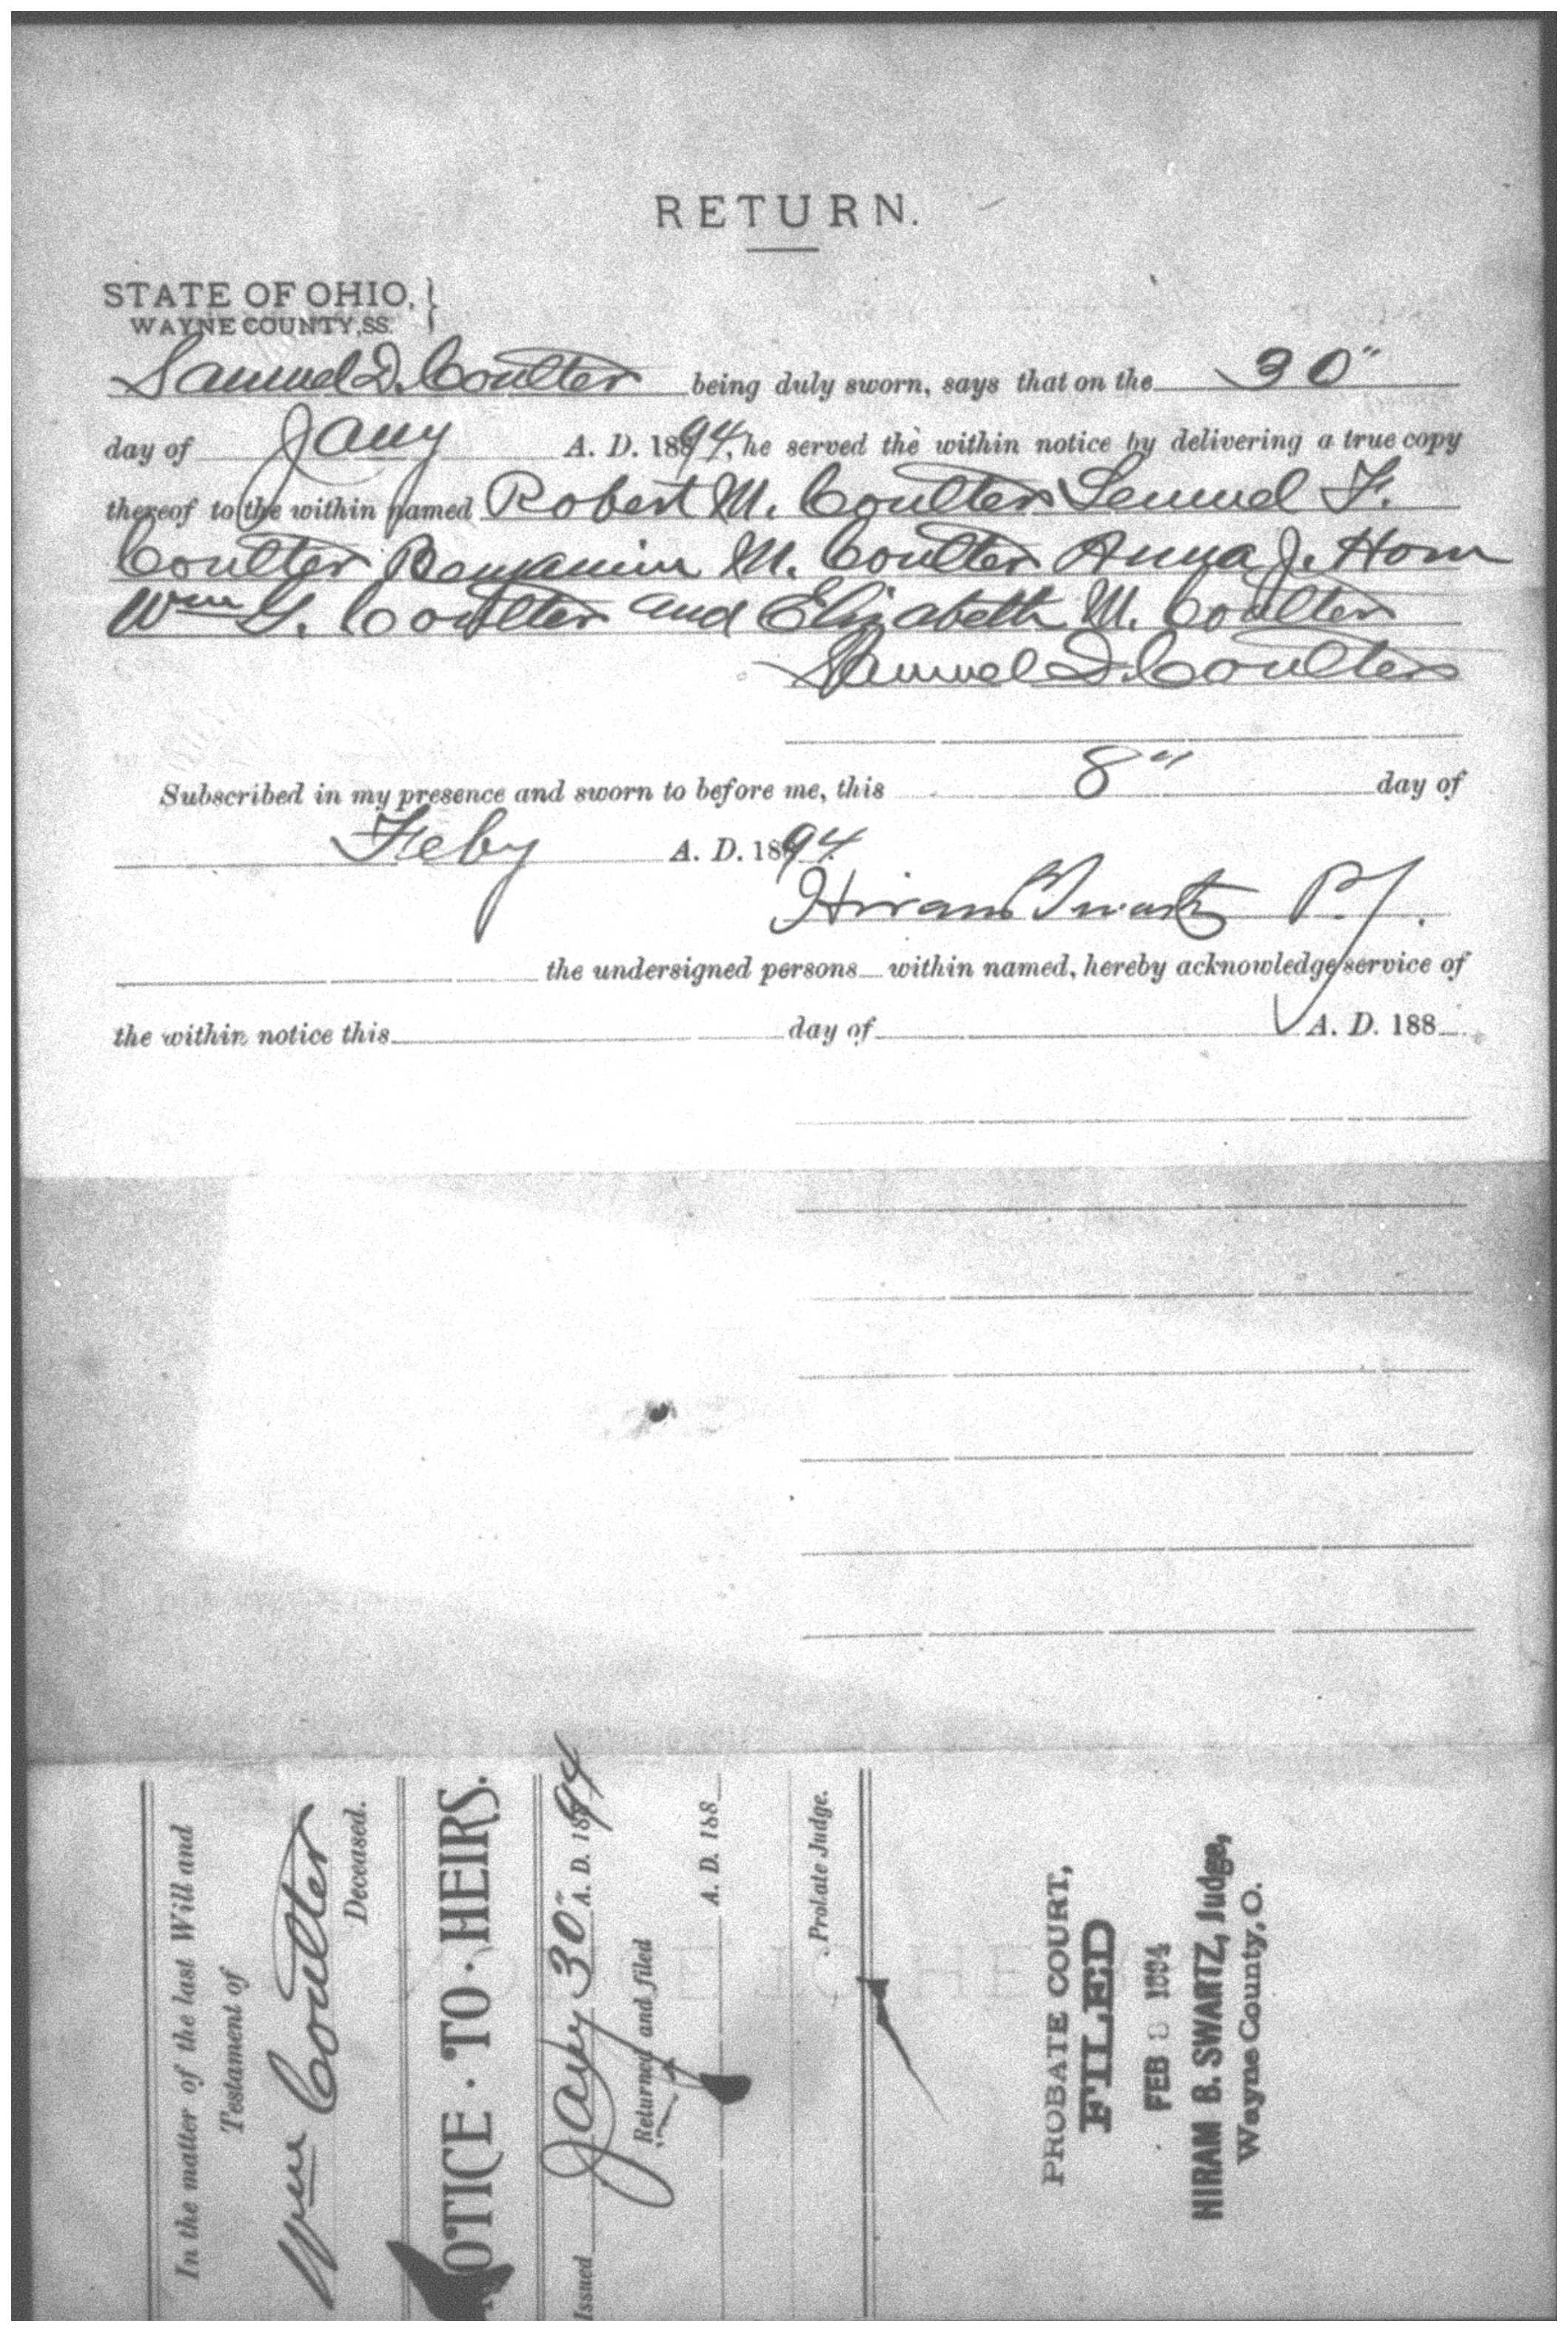 RETURN.
STATE OF OHIO, }
WAYNE COUNTY, SS.
Samuel D. Coulter being duly sworn, says that on the 30"
day of Jany A. D. 1894, he served the within notice by delivering a true copy
thereof to the within named Robert M. Coulter Lemuel F.
Coulter Benjamin M. Coulter Anna J. Horn
Wm G. Coulter and Elizabeth M. Coulter
Samuel D. Coulter
Subscribed in my presence and sworn to before me, this 8" day of
Feby A. D. 1894
Hiram B Swartz P.J.
the undersigned persons within named, hereby acknowledge service of
the within notice this day of A. D. 188
In the matter of the last Will and
Testament of
Wm Coulter
Deceased.
NOTICE · TO · HEIRS.
Issued Jany 30" A. D. 1894
Returned and filed
A. D. 188
Probate Judge.
PROBATE COURT,
FILED
FEB 8 1894
HIRAM B. SWARTZ, Judge,
Wayne County, O.